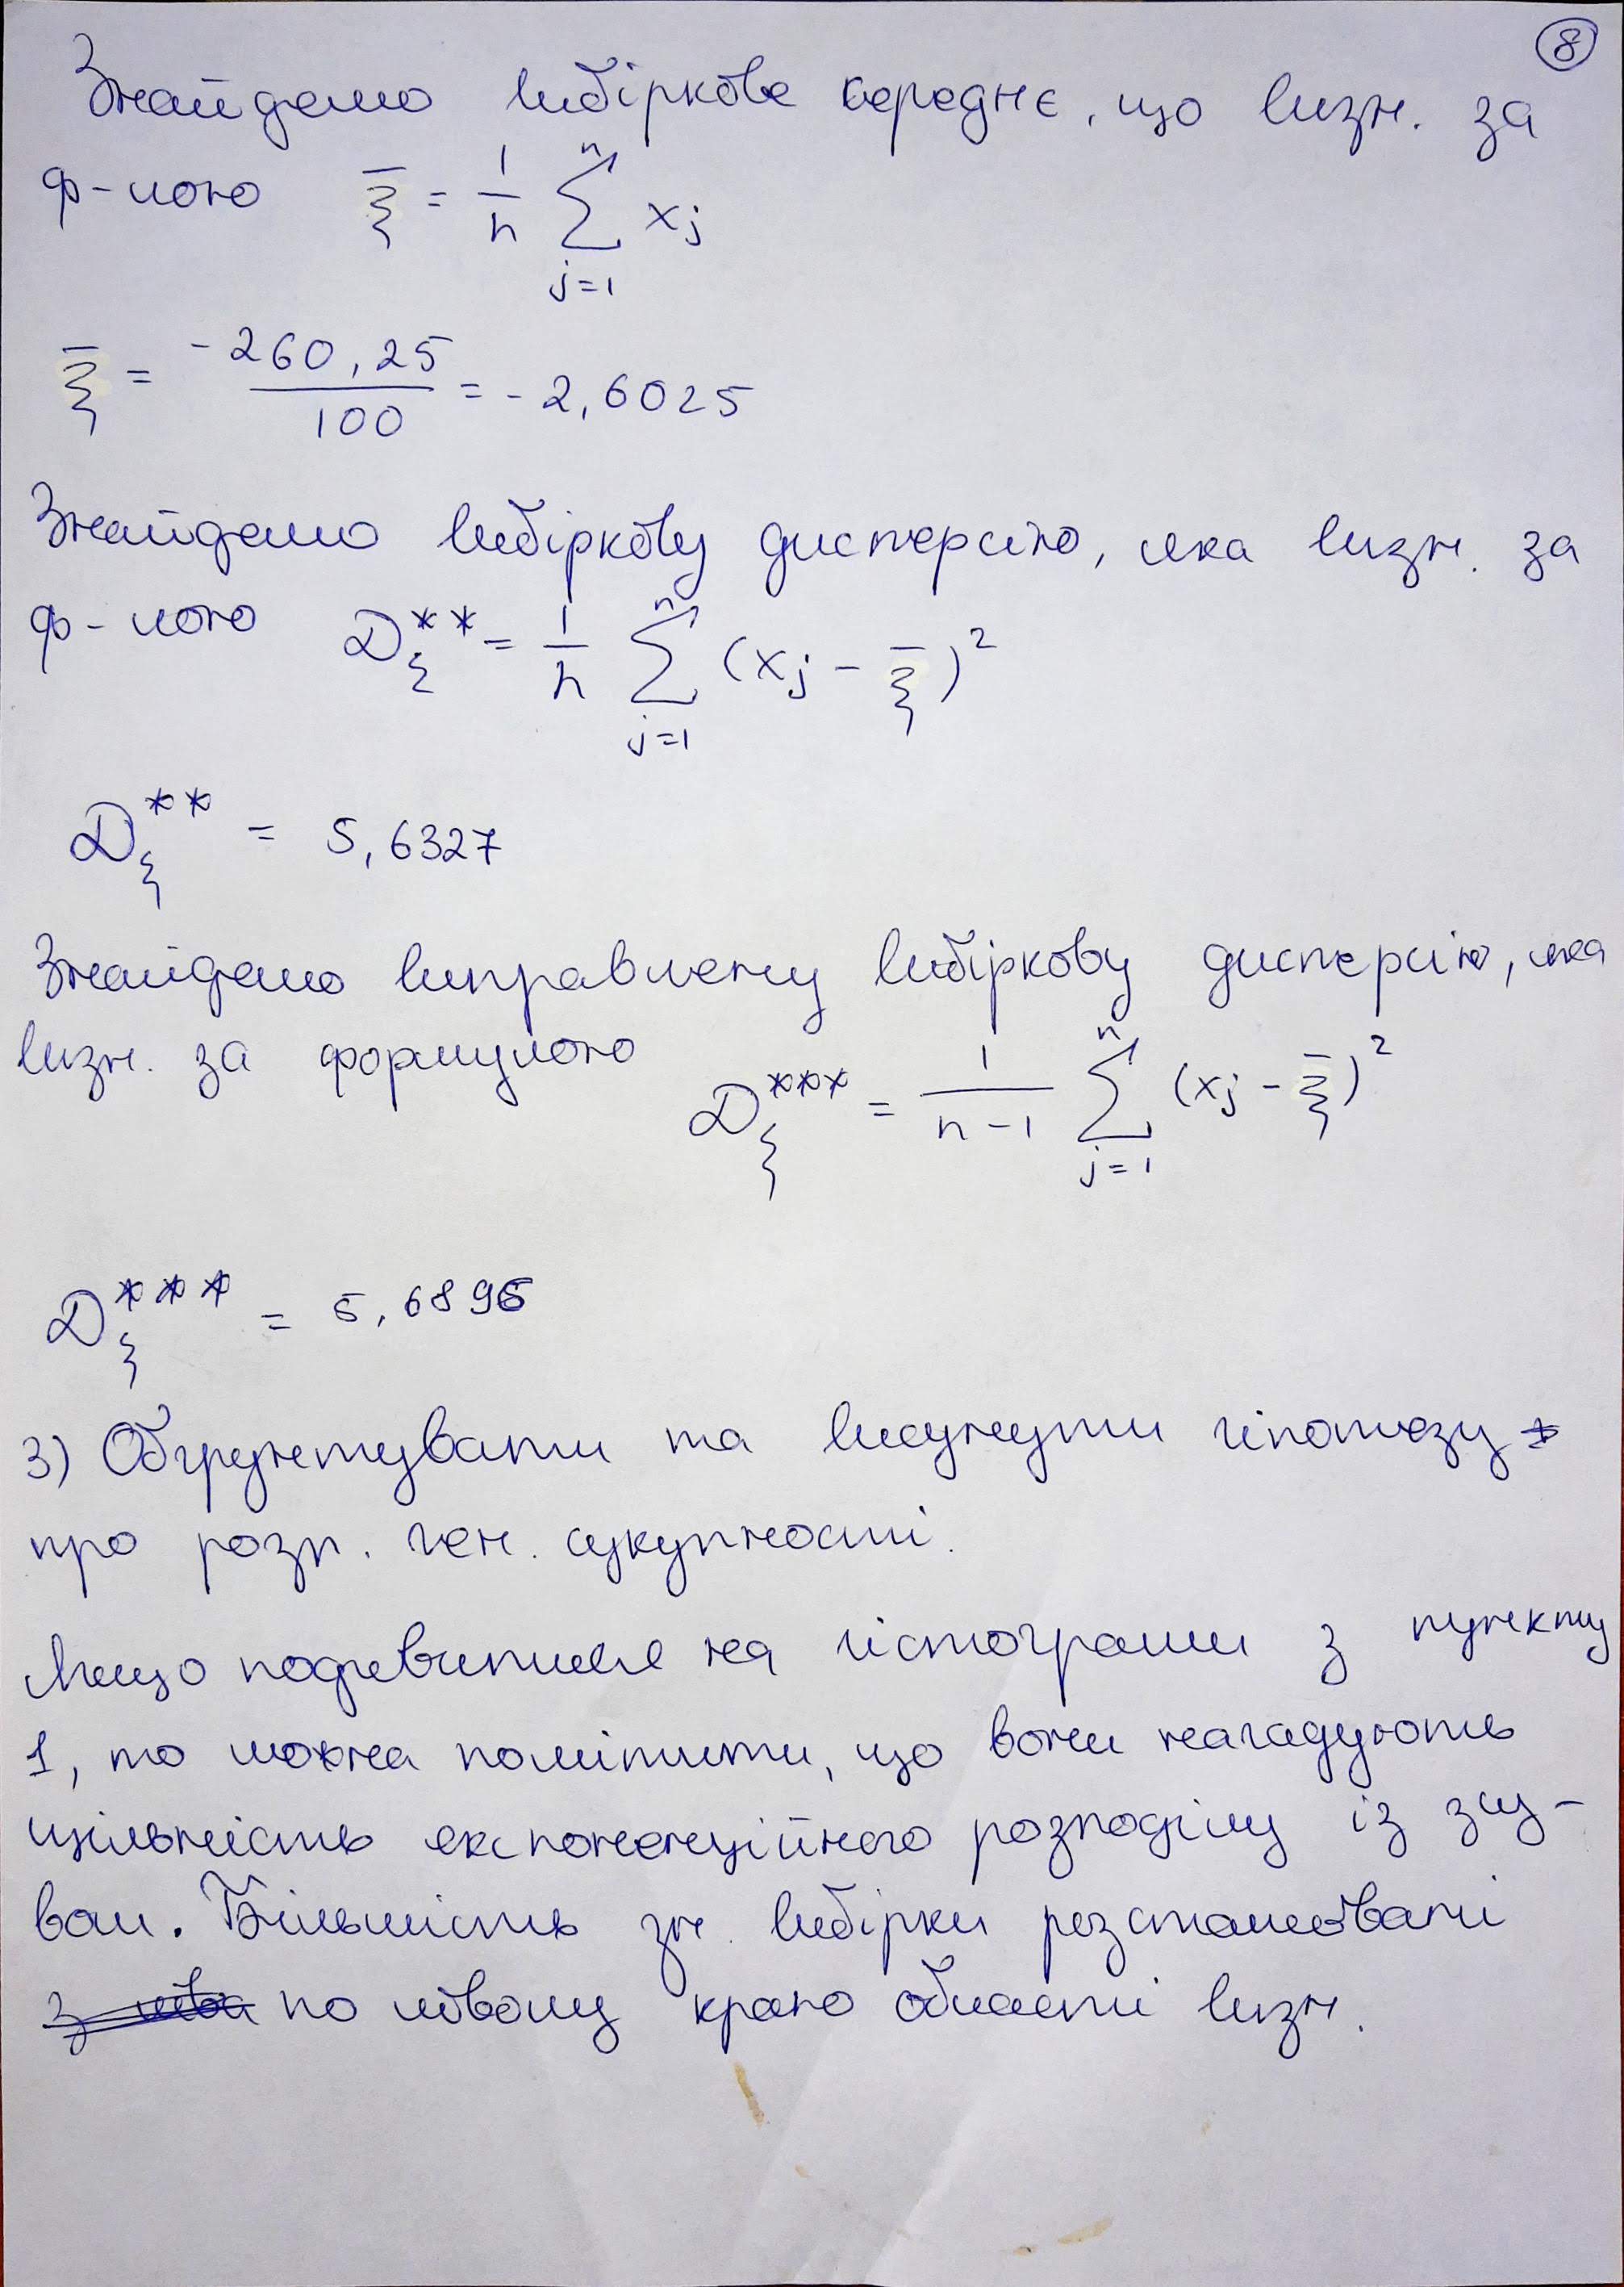 8
Знайдемо вибіркове середнє, що визн. за
ф-лою ξ̄ = 1/n ∑_{j=1}^{n} x_j
ξ̄ = -260,25/100 = -2,6025
Знайдемо вибіркову дисперсію, яка визн. за
ф-лою D_ξ^{**} = 1/n ∑_{j=1}^{n} (x_j - ξ̄)^2
D_ξ^{**} = 5,6327
Знайдемо виправлену вибіркову дисперсію, яка
визн. за формулою D_ξ^{***} = 1/(n-1) ∑_{j=1}^{n} (x_j - ξ̄)^2
D_ξ^{***} = 5,6896
3) Обґрунтувати та висунути гіпотезу
про розп. ген. сукупності.
Якщо подивитися на гістограми з пункту
1, то можна помітити, що вони нагадують
щільність експоненційного розподілу із зсу-
вом. Більшість зн. вибірки розташовані
по лівому краю області визн.